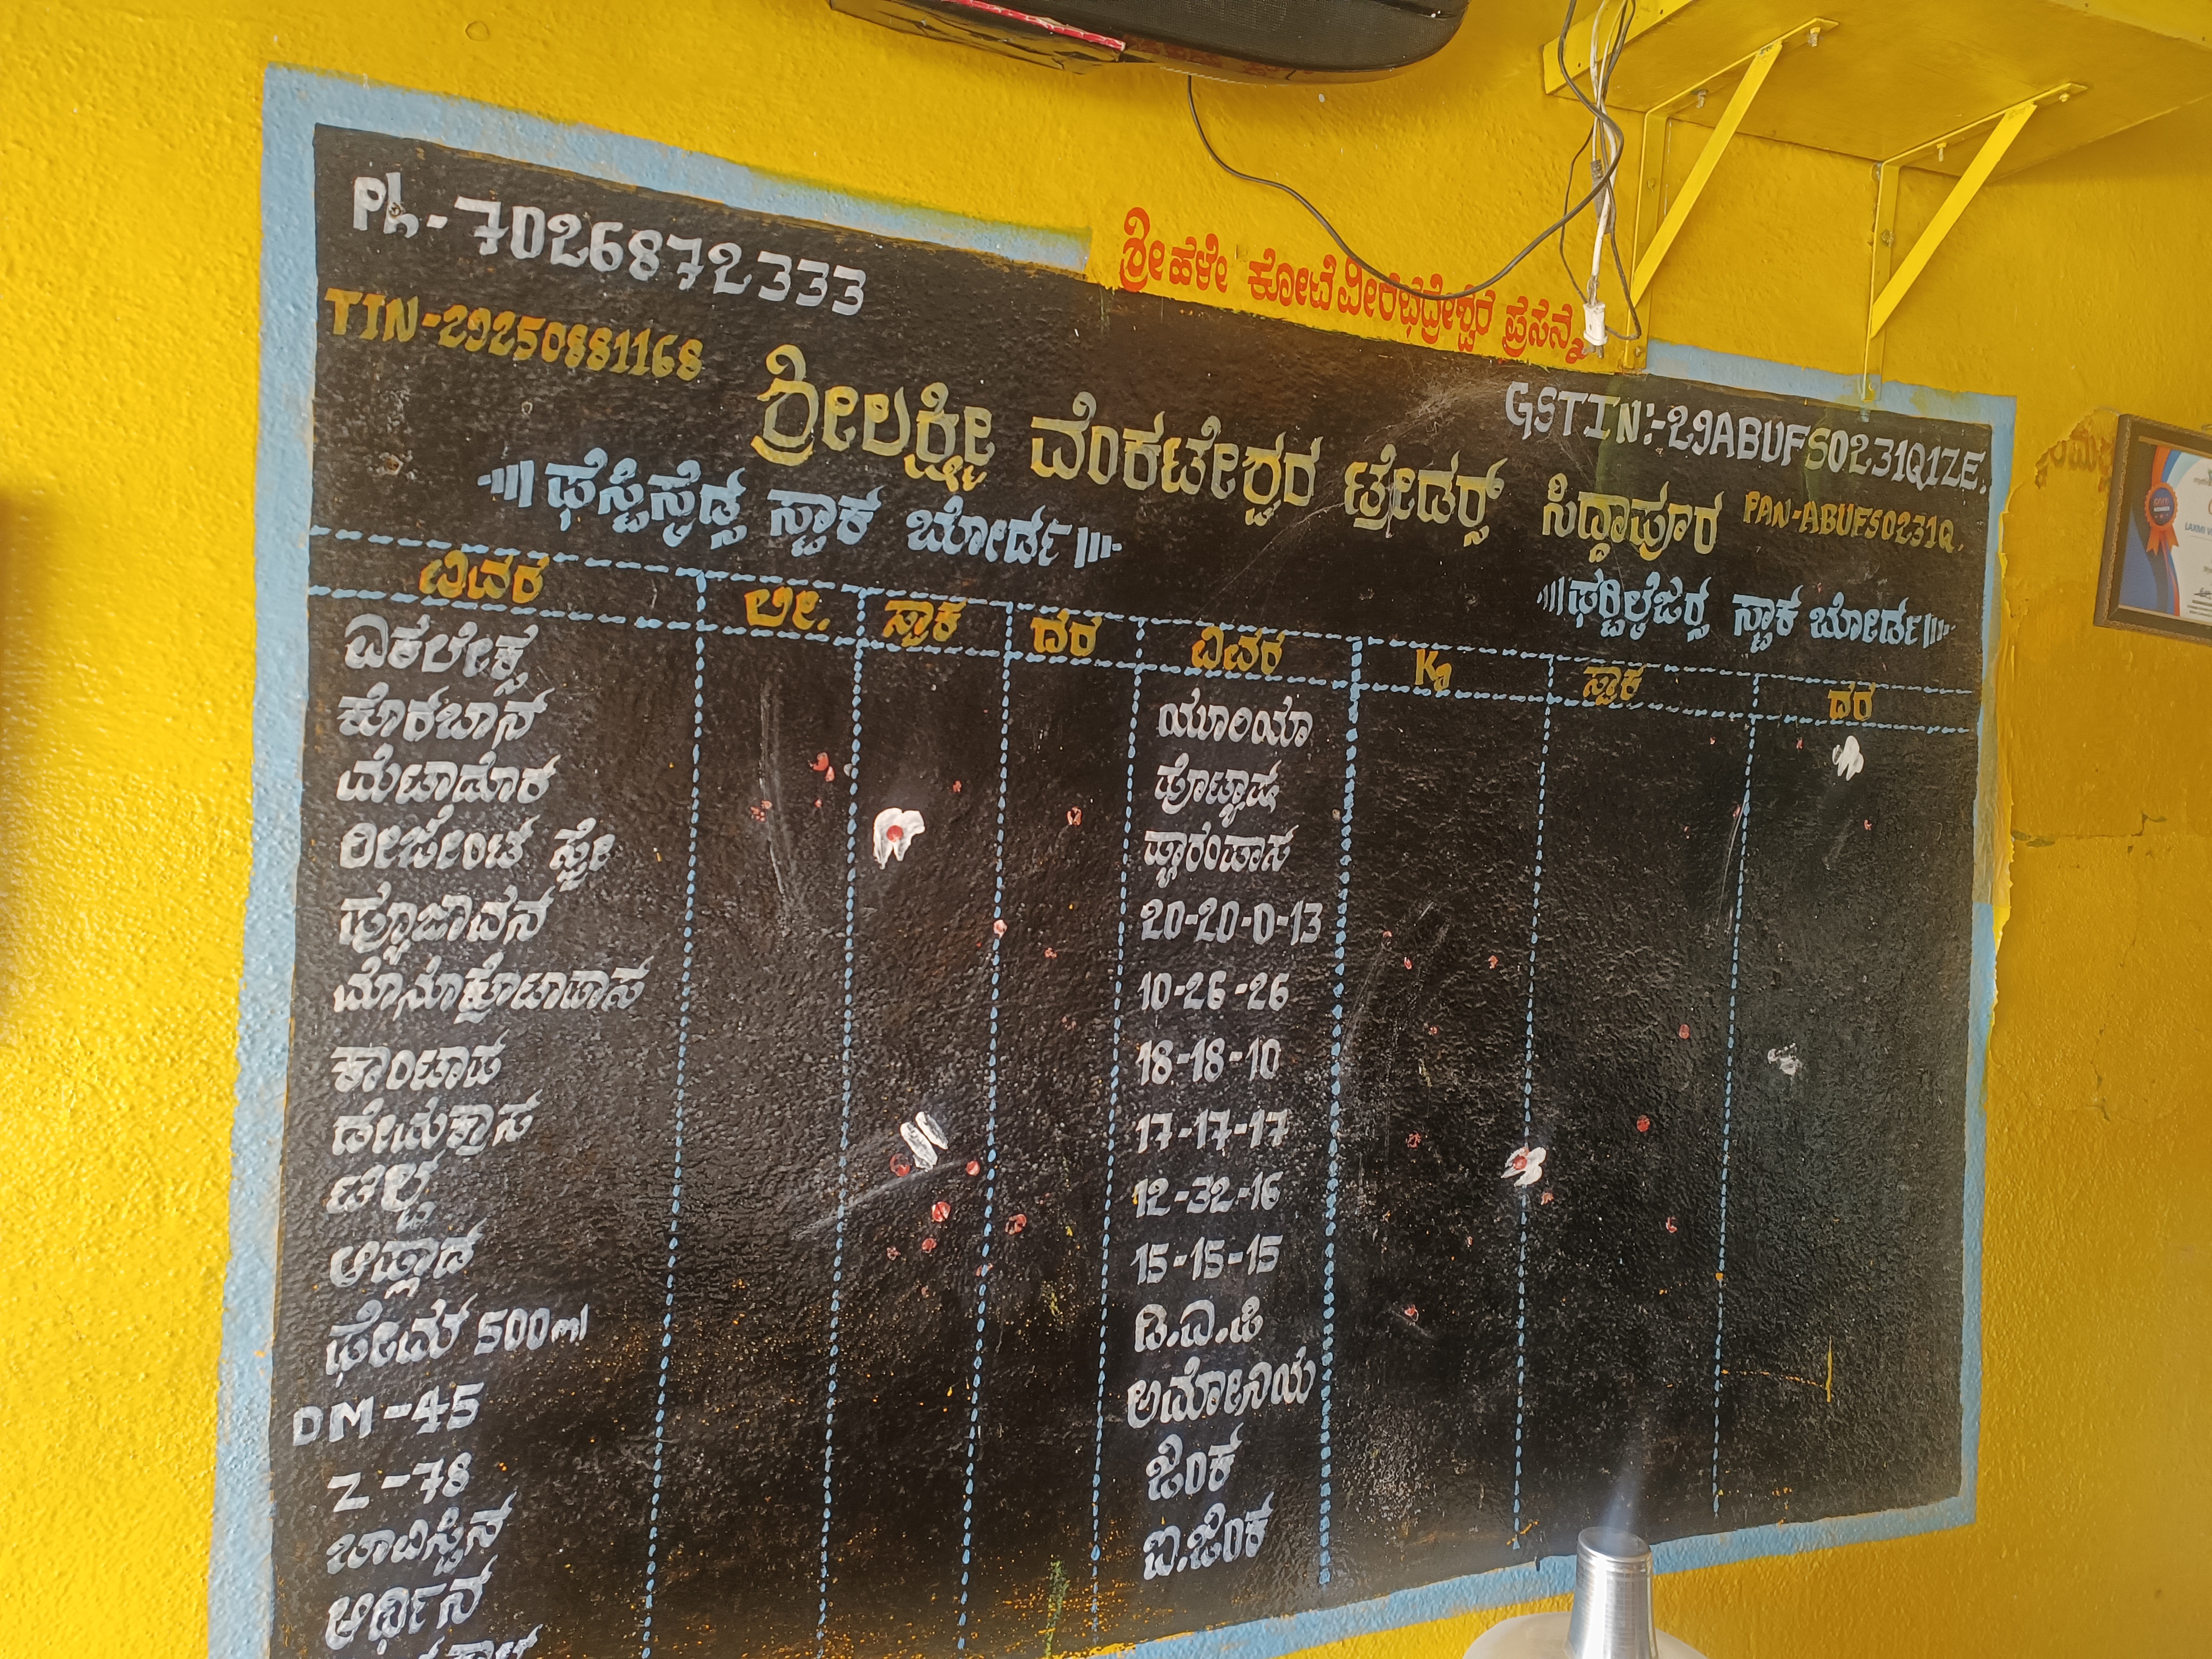 ಶ್ರೀ ಹಳೇ ಕೋಟೆ ವೀರಭದ್ರೇಶ್ವರ ಪ್ರಸನ್ನ
Ph-7026872333
TIN-29250881168
GSTIN:-29ABUFS0231Q1ZE.
ಶ್ರೀಲಕ್ಷ್ಮೀ ವೆಂಕಟೇಶ್ವರ ಟ್ರೇಡರ್ಸ್ ಸಿದ್ದಾಪೂರ PAN-ABUFS0231Q.
ಫೆಸ್ಟಿಸೈಡ್ಸ ಸ್ಟಾಕ ಬೋರ್ಡ
ಫರ್‍ಟಿಲೈಜರ್‍ಸ ಸ್ಟಾಕ ಬೋರ್ಡ
ವಿವರ ಲೀ. ಸ್ಟಾಕ ದರ ವಿವರ Kg ಸ್ಟಾಕ ದರ
ಏಕಲೇಕ್ಸ
ಕೊರಬಾನ ಯೂರಿಯಾ
ಮೆಟಾಡೊರ ಪೊಟ್ಯಾಷ
ರೀಜೇಂಟ ಸ್ಪ್ರೇ ಪ್ಯಾರಂಪಾಸ
20-20-0-13
ಮೊನೂಕ್ರೊಟಾಪಾಸ 10-26-26
ಕಾಂಟಾಪ 18-18-10
17-17-17
12-32-16
15-15-15
ಫೇಮ 500ml ಡಿ.ಎ.ಪಿ
DM-45 ಅಮೋನಿಯ
Z-78 ಜಿಂಕ
ಬಾವಿಸ್ಟಿನ ಐ.ಜಿಂಕ